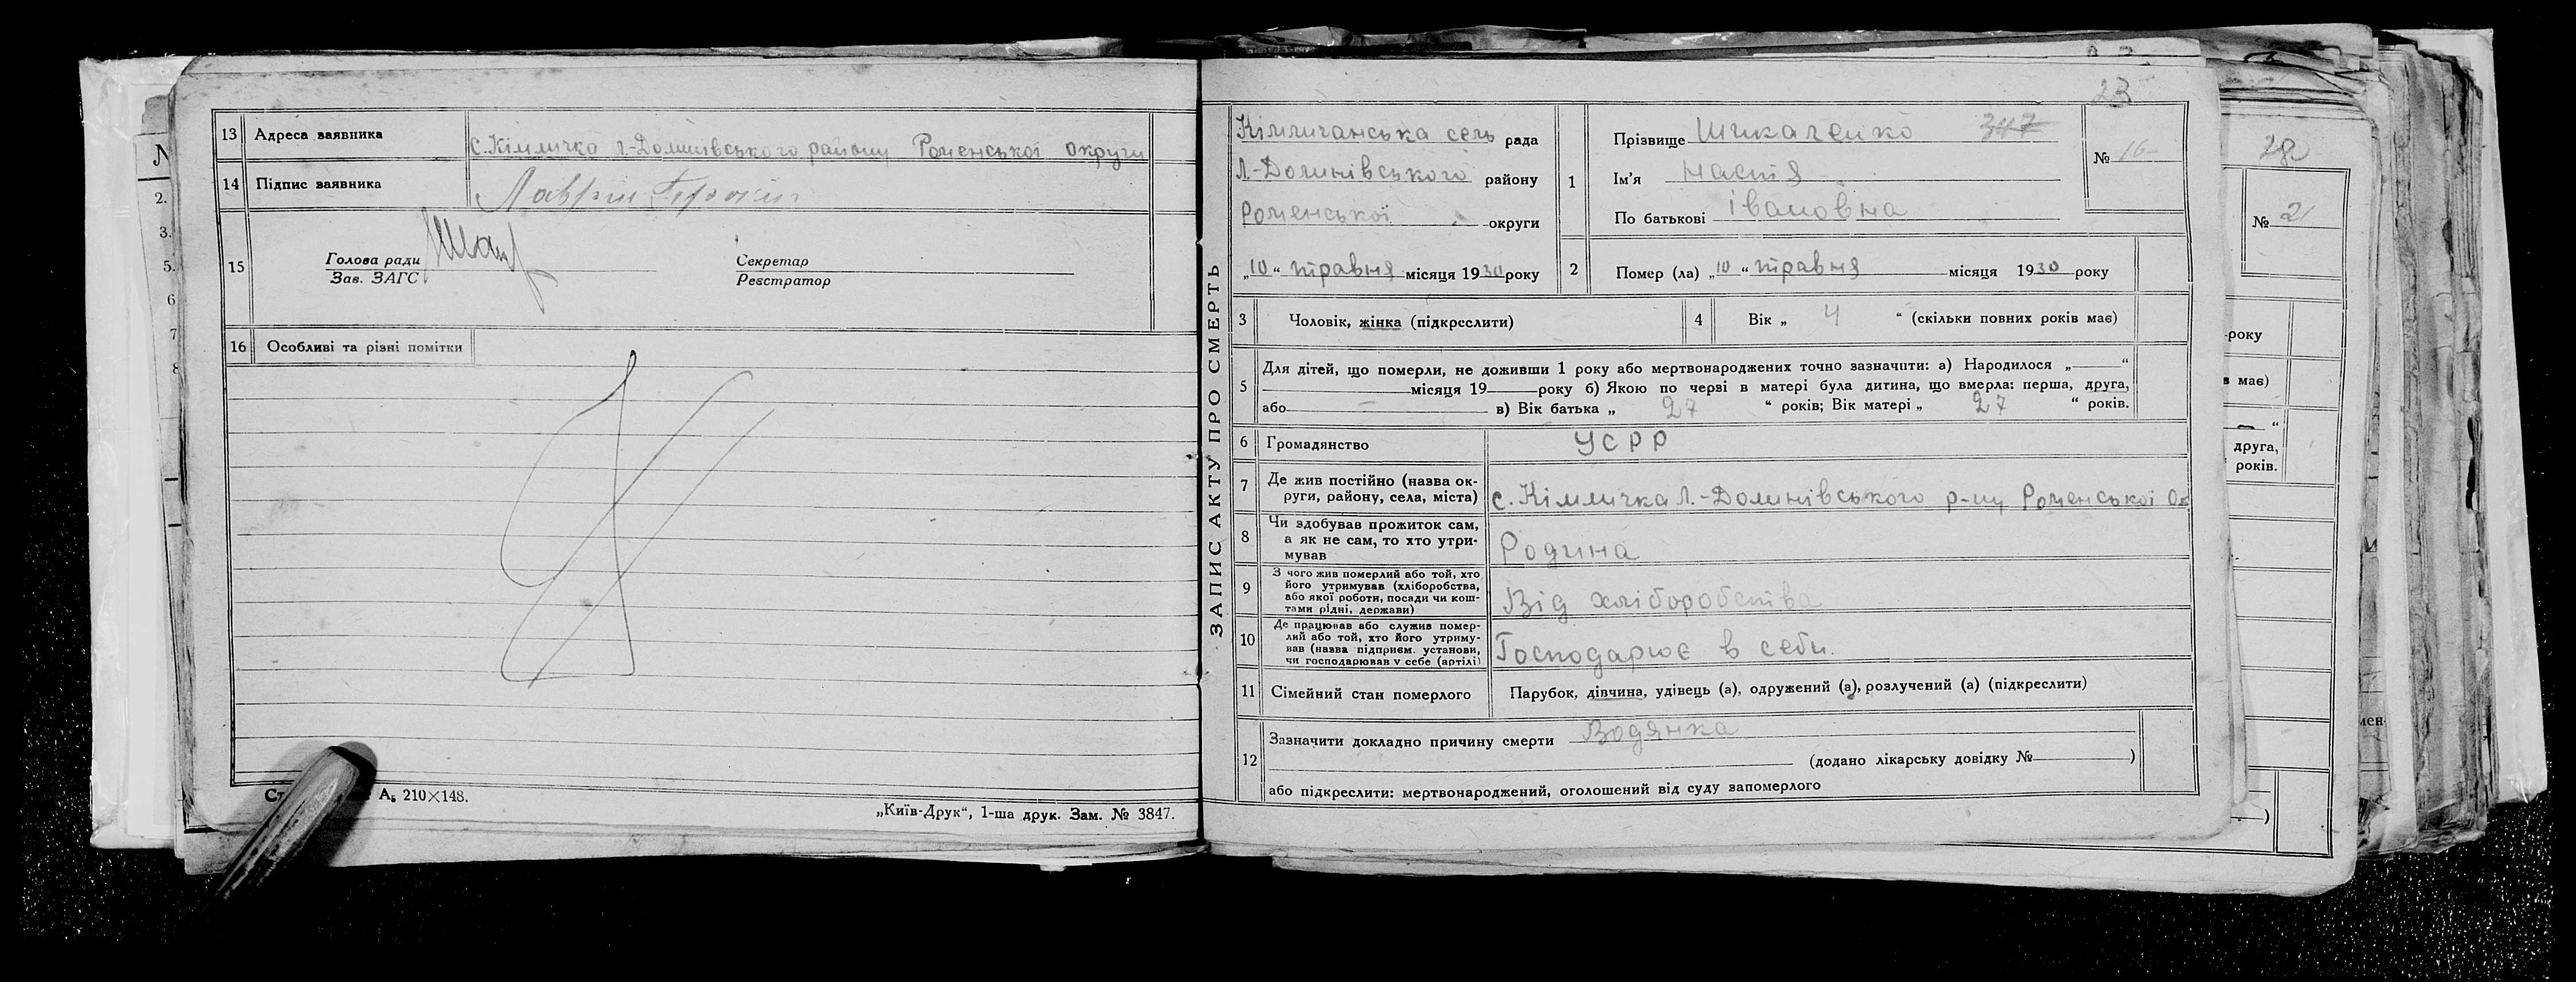 13 Адреса заявника с. Кімличка Л.-Долинівського району Роменської округи
14 Підпис заявника
15 Голова ради
Зав. ЗАГС
Секретар
Реєстратор
16 Особливі та різні помітки
А5 210×148.
„Київ-Друк“, 1-ша друк. Зам. № 3847.
ЗАПИС АКТУ ПРО СМЕРТЬ
23
Кімличанська сель рада
Л.-Долинівського району
Роменської округи
„10“ травня місяця 1930 року
1 Прізвище Шикаленко 347
Ім’я Настя
По батькові Івановна
№ 16
2 Помер (ла) „10“ травня місяця 1930 року
3 Чоловік, жінка (підкреслити)
4 Вік „ 4 “ (скільки повних років має)
5 Для дітей, що померли, не доживши 1 року або мертвонароджених точно зазначити: а) Народилося „ “
місяця 19 року б) Якою по черві в матері була дитина, що вмерла: перша, друга,
або в) Вік батька „ 27 “ років; Вік матері „ 27 “ років.
6 Громадянство УСРР
7 Де жив постійно (назва ок-
руги, району, села, міста) с. Кімличка Л.-Долинівського р-ну Роменської Ок
8 Чи здобував прожиток сам,
а як не сам, то хто утри-
мував Родина
9 З чого жив померлий або той, хто
його утримував (хліборобства,
або якої роботи, посади чи кош-
тами рідні, держави) Від хліборобства
10 Де працював або служив помер-
лий або той, хто його утриму-
вав (назва підприєм. установи,
чи господарював у себе (артілі) Господарює в себи.
11 Сімейний стан померлого Парубок, дівчина, удівець (а), одружений (а), розлучений (а) (підкреслити)
12 Зазначити докладно причину смерти Водянка
(додано лікарську довідку № )
або підкреслити: мертвонароджений, оголошений від суду запомерлого
28
№ 21
року
в має)
“
друга,
років.
)